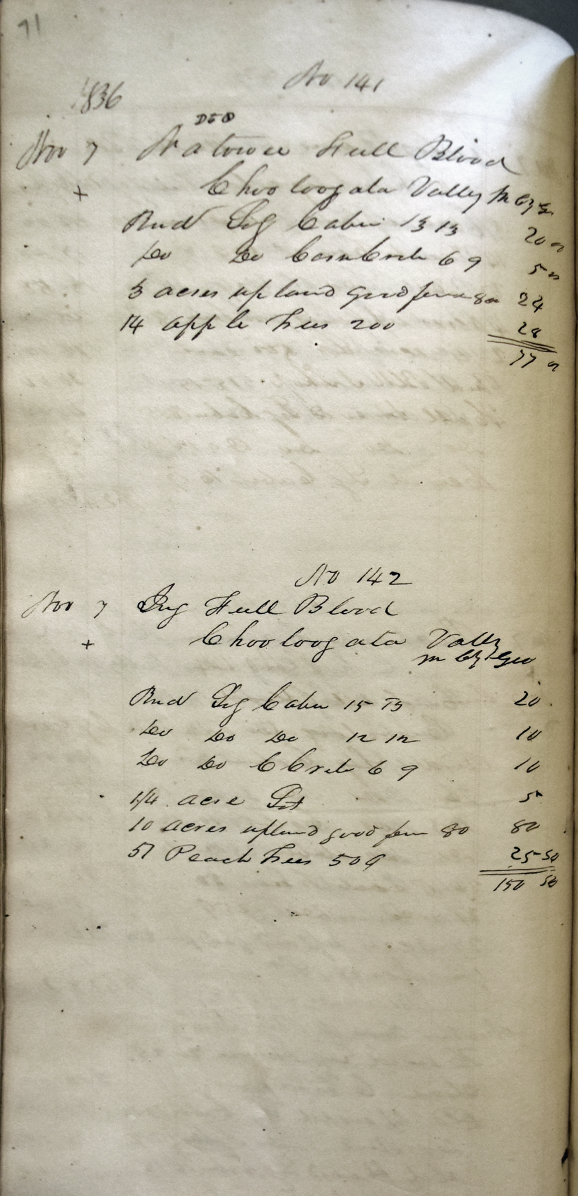 71
No 141
1836
DEO
Nov 7 Natower Full Blood
+ Chooloogata Valley M Cy
Rnd Log Cabin 13 13 20 00
Do Do Corn Crib 6 9 5 00
3 acres upland good fen 8 00 24
14 apple Trees 200 28
77 00
No 142
Nov 7 Full Blood
+ Chooloogata Valley
M Cty Geo
Rnd Log Cabin 15 13 20
Do Do Do 12 12 10
Do Do C Crib 6 9 10
1/4 acre Lot 5
10 acres upland good fen 80 80
51 Peach Trees 50 25-50
150 50